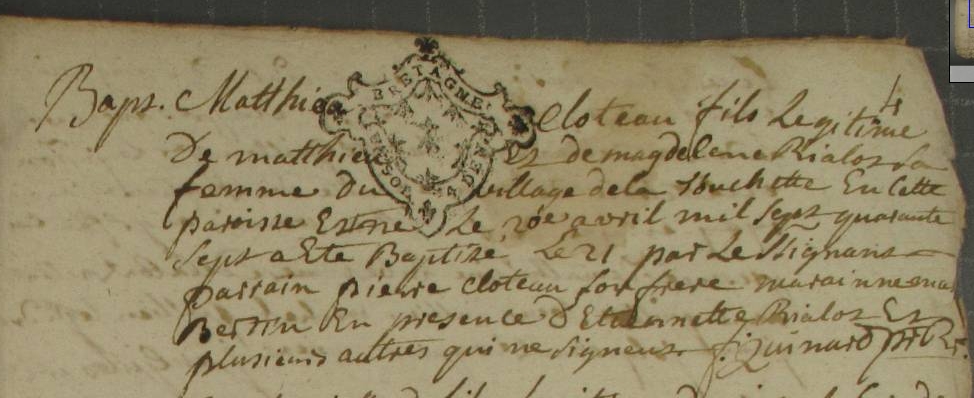 Bapt. Matthieu Cloteau fils Legitime
4
BRETAGNE
De matthieu Et de magdelene Rialot Sa
femme du village de la touchette En Cette
paroisse Est né Le 20e avril mil Sept quarante
Sept a Eté Baptizé Le 21 par Le Signant
parrain pierre cloteau Son frere marainne
Bertin En presence d'Etiennette Rialot Et
plusieurs autres qui ne Signent